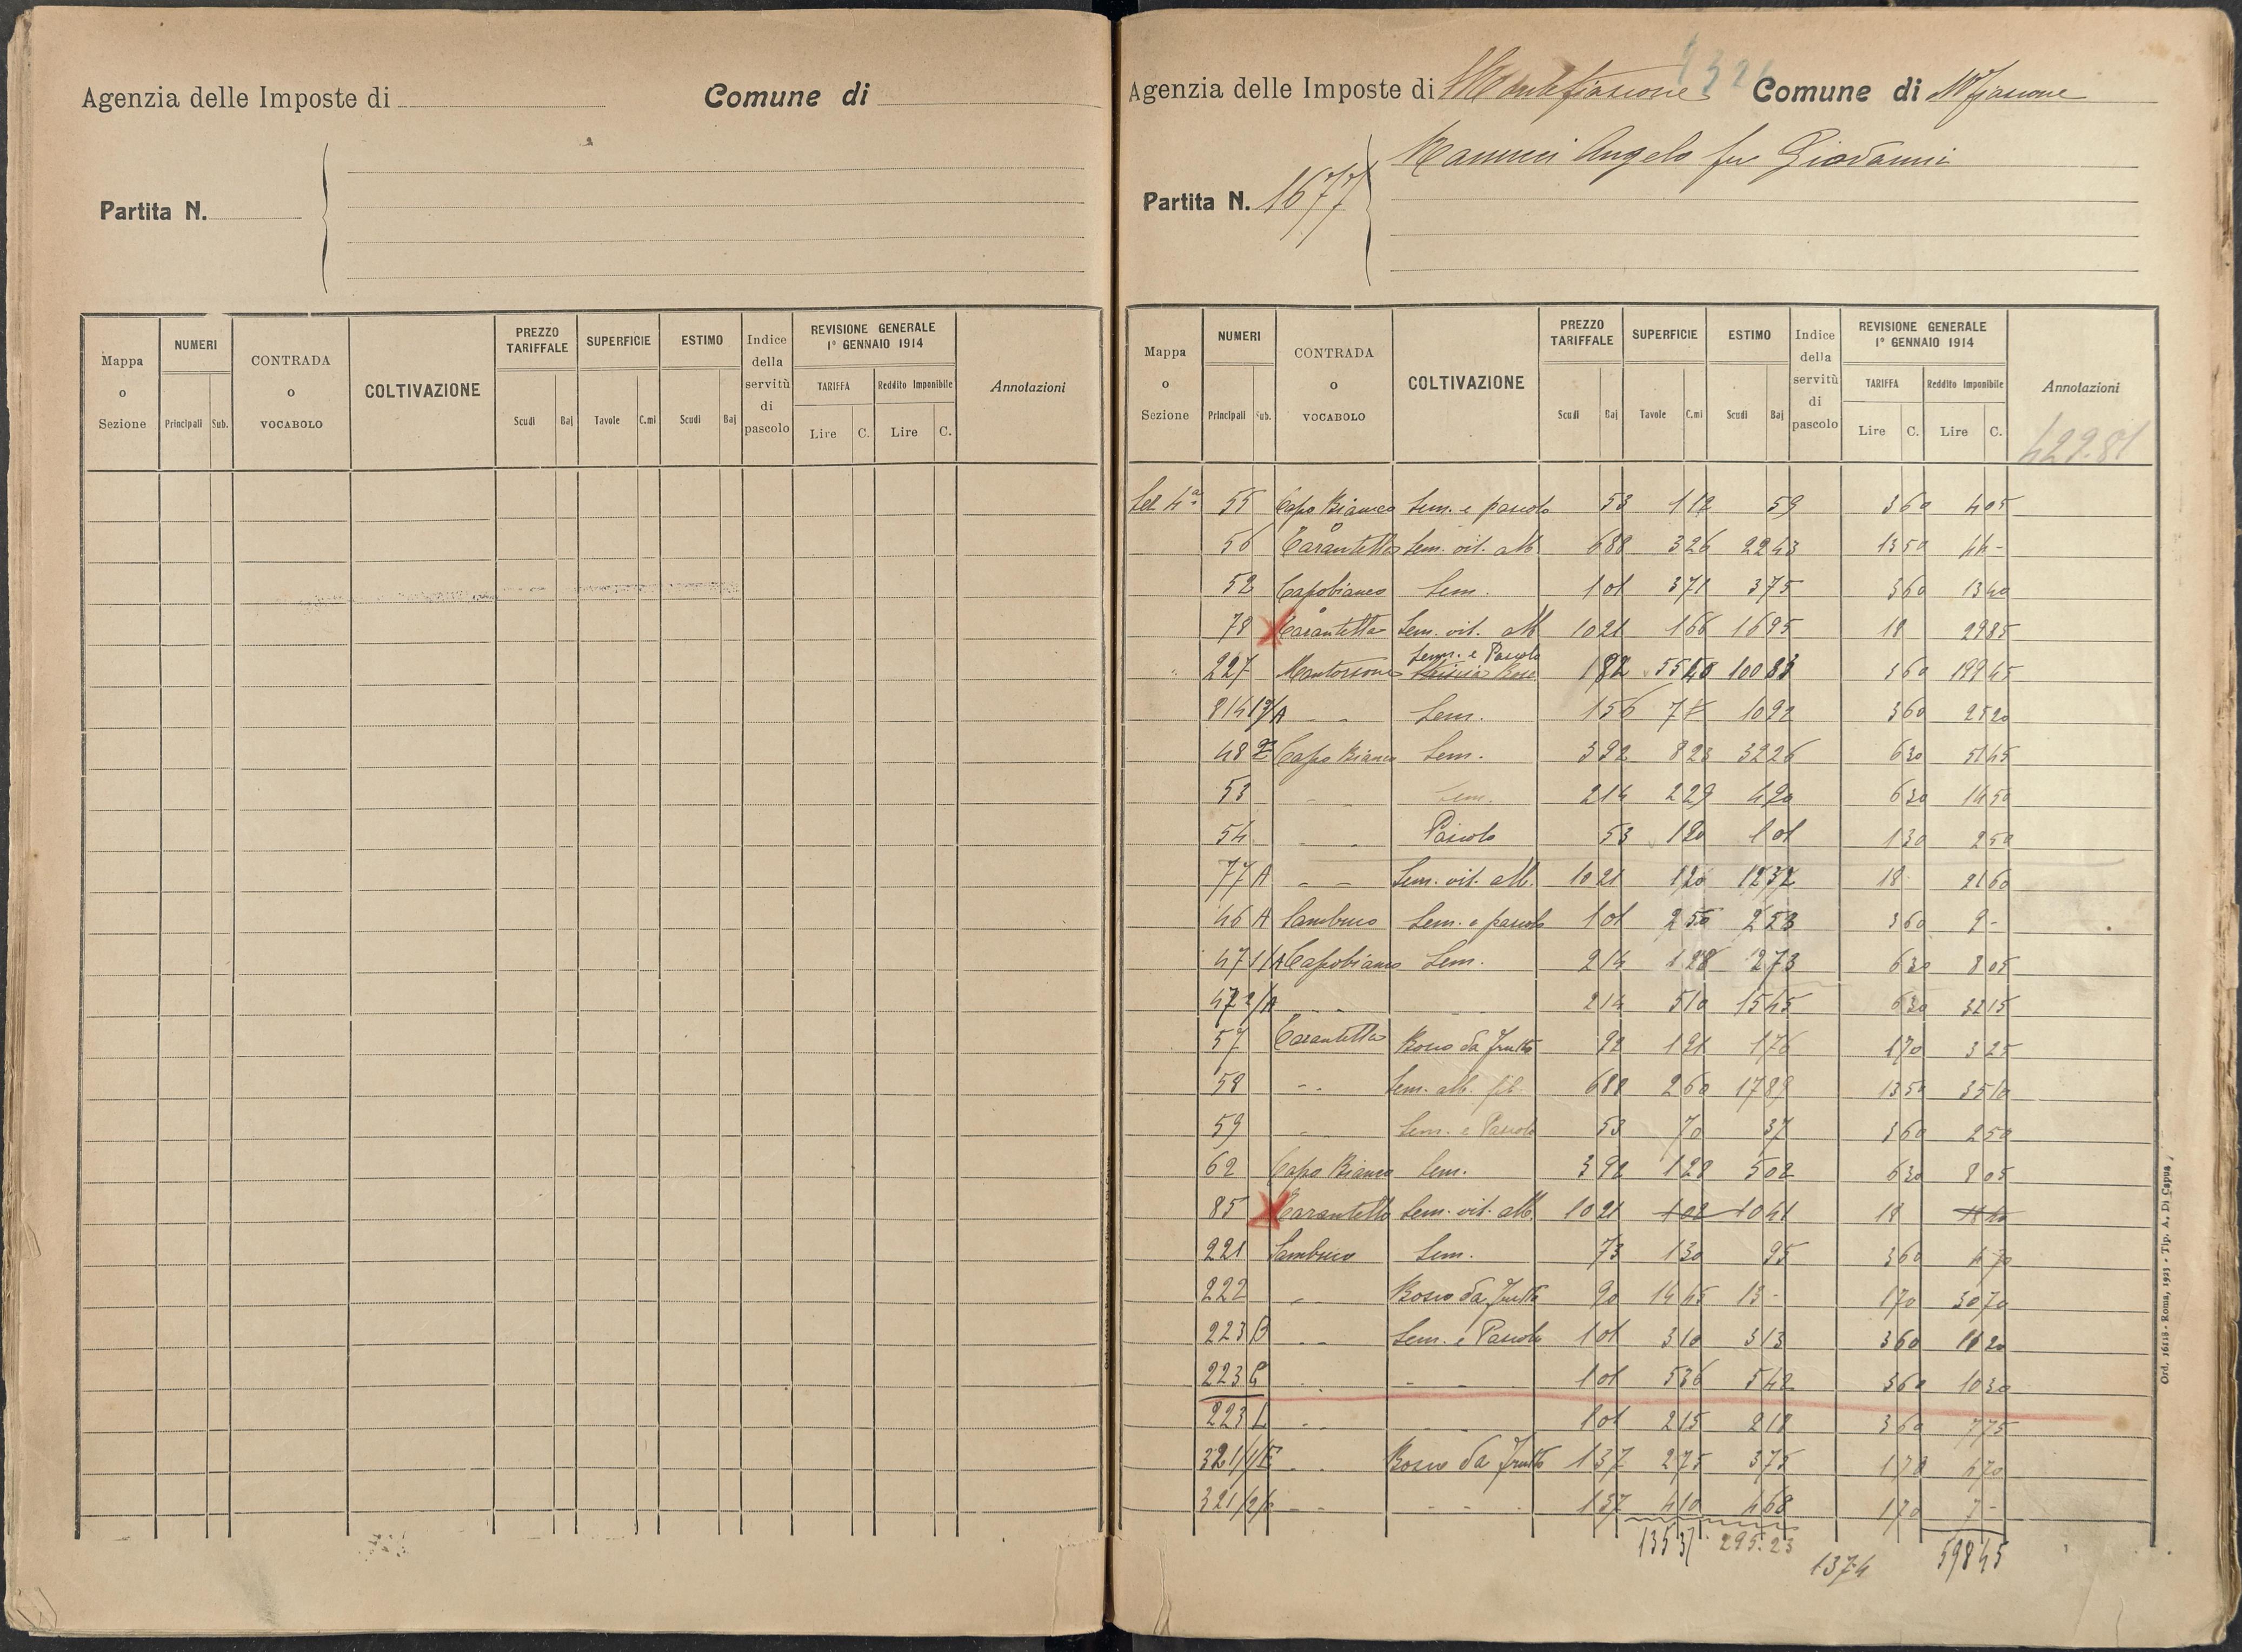 Agenzia delle Imposte di
Comune di
Partita N.
Mappa o Sezione
NUMERI
Principali Sub.
CONTRADA o VOCABOLO
COLTIVAZIONE
PREZZO TARIFFALE
Scudi Baj
SUPERFICIE
Tavole C.mi
ESTIMO
Scudi Baj
Indice della servitù di pascolo
REVISIONE GENERALE
1° GENNAIO 1914
TARIFFA
Lire C.
Reddito Imponibile
Lire C.
Annotazioni
Agenzia delle Imposte di Montefiascone Comune di Mfiascone
Angelo fu Giovanni
Partita N. 1677
Mappa o Sezione
NUMERI
Principali Sub.
CONTRADA o VOCABOLO
COLTIVAZIONE
PREZZO TARIFFALE
Scudi Baj
SUPERFICIE
Tavole C.mi
ESTIMO
Scudi Baj
Indice della servitù di pascolo
REVISIONE GENERALE
1° GENNAIO 1914
TARIFFA
Lire C.
Reddito Imponibile
Lire C.
Annotazioni
422.81
4ª 55 Capo Bianco Sem. e pascolo 53 1 12 59 3 60 4 05
56 Carantetta Sem. vit. alb 6 88 3 26 22 43 13 50 44 -
52 Capobianco Sem. 1 01 3 71 3 75 3 60 13 40
78 Carantetta Sem. vit. alb 10 21 1 66 16 95 18 29 85
Sem. e Pascolo
227 1 82 55 40 100 83 3 60 199 45
Sem. 1 56 7 10 92 3 60 25 20
48 2 Capo Bianco Sem. 3 92 8 23 32 26 6 30 51 45
53 - - Sem. 2 14 2 29 4 90 6 30 14 50
54 - - Pascolo 53 1 20 1 01 1 30 2 50
77 A - - Sem. vit. alb. 10 21 1 20 12 32 18 21 60
46 A Sambuco Sem. e pascolo 1 01 2 50 2 53 3 60 9 -
47 1/A Capobianco Sem. 2 14 1 28 2 73 6 30 8 05
47 2/A - - 2 14 5 10 15 45 6 30 32 15
57 Carantetta Bosco da frutto 92 1 91 1 76 1 70 3 25
58 - - Sem. alb. 6 88 2 60 17 89 13 50 35 10
59 - Sem. e Pascolo 53 70 37 3 60 2 50
62 Capo Bianco Sem. 3 92 1 28 5 02 6 30 8 05
85 Carantetta Sem. vit. alb. 10 21 1 02 10 41 18
221 Sambuco Sem. 73 1 30 95 3 60 4 70
222 - Bosco da frutto 90 14 45 13 - 1 70 30 70
223 B - - Sem. e Pascolo 1 01 3 10 3 13 3 60 11 20
223 - - - 1 01 5 36 5 42 3 60 10 30
223 L - 1 01 2 15 2 18 3 60 7 75
321/1/E - - Bosco da frutto 1 37 2 75 3 75 1 70 4 70
321/2/ - - - - - 1 37 4 10 4 68 1 70 7 -
135 31 295.23
1374 598 45
Ord. 16118 - Roma, 1923 - Tip. A. Di Capua